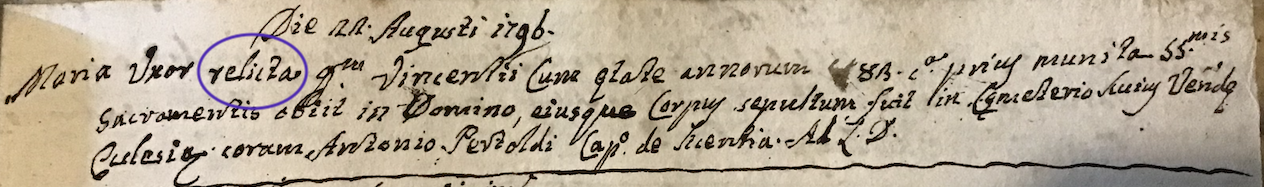 Die 22. Augusti 1796.
Maria Uxor relicta qm Vincentii Cum etate annorum 82. ca prius munita SS.mis
Sacramentis obiit in Domino, eiusque Corpus sepultum fuit in Cemeterio huius Vende
Eclesie. coram Antonio Pertoldi Capo. de licentia. Ad L. D.